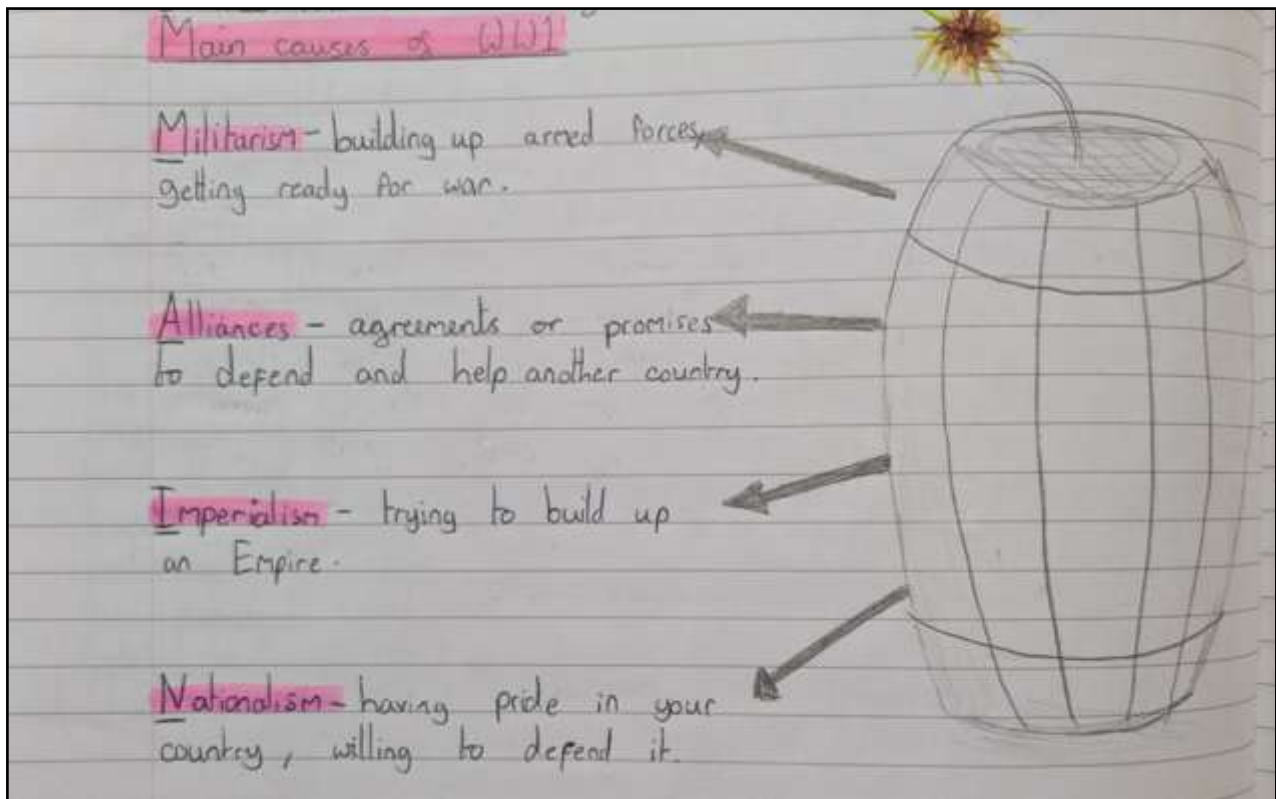 Main causes of WW1
Militarism - building up armed forces,
getting ready for war.
Alliances - agreements or promises
to defend and help another country.
Imperialism - trying to build up
an Empire.
Nationalism - having pride in your
country, willing to defend it.